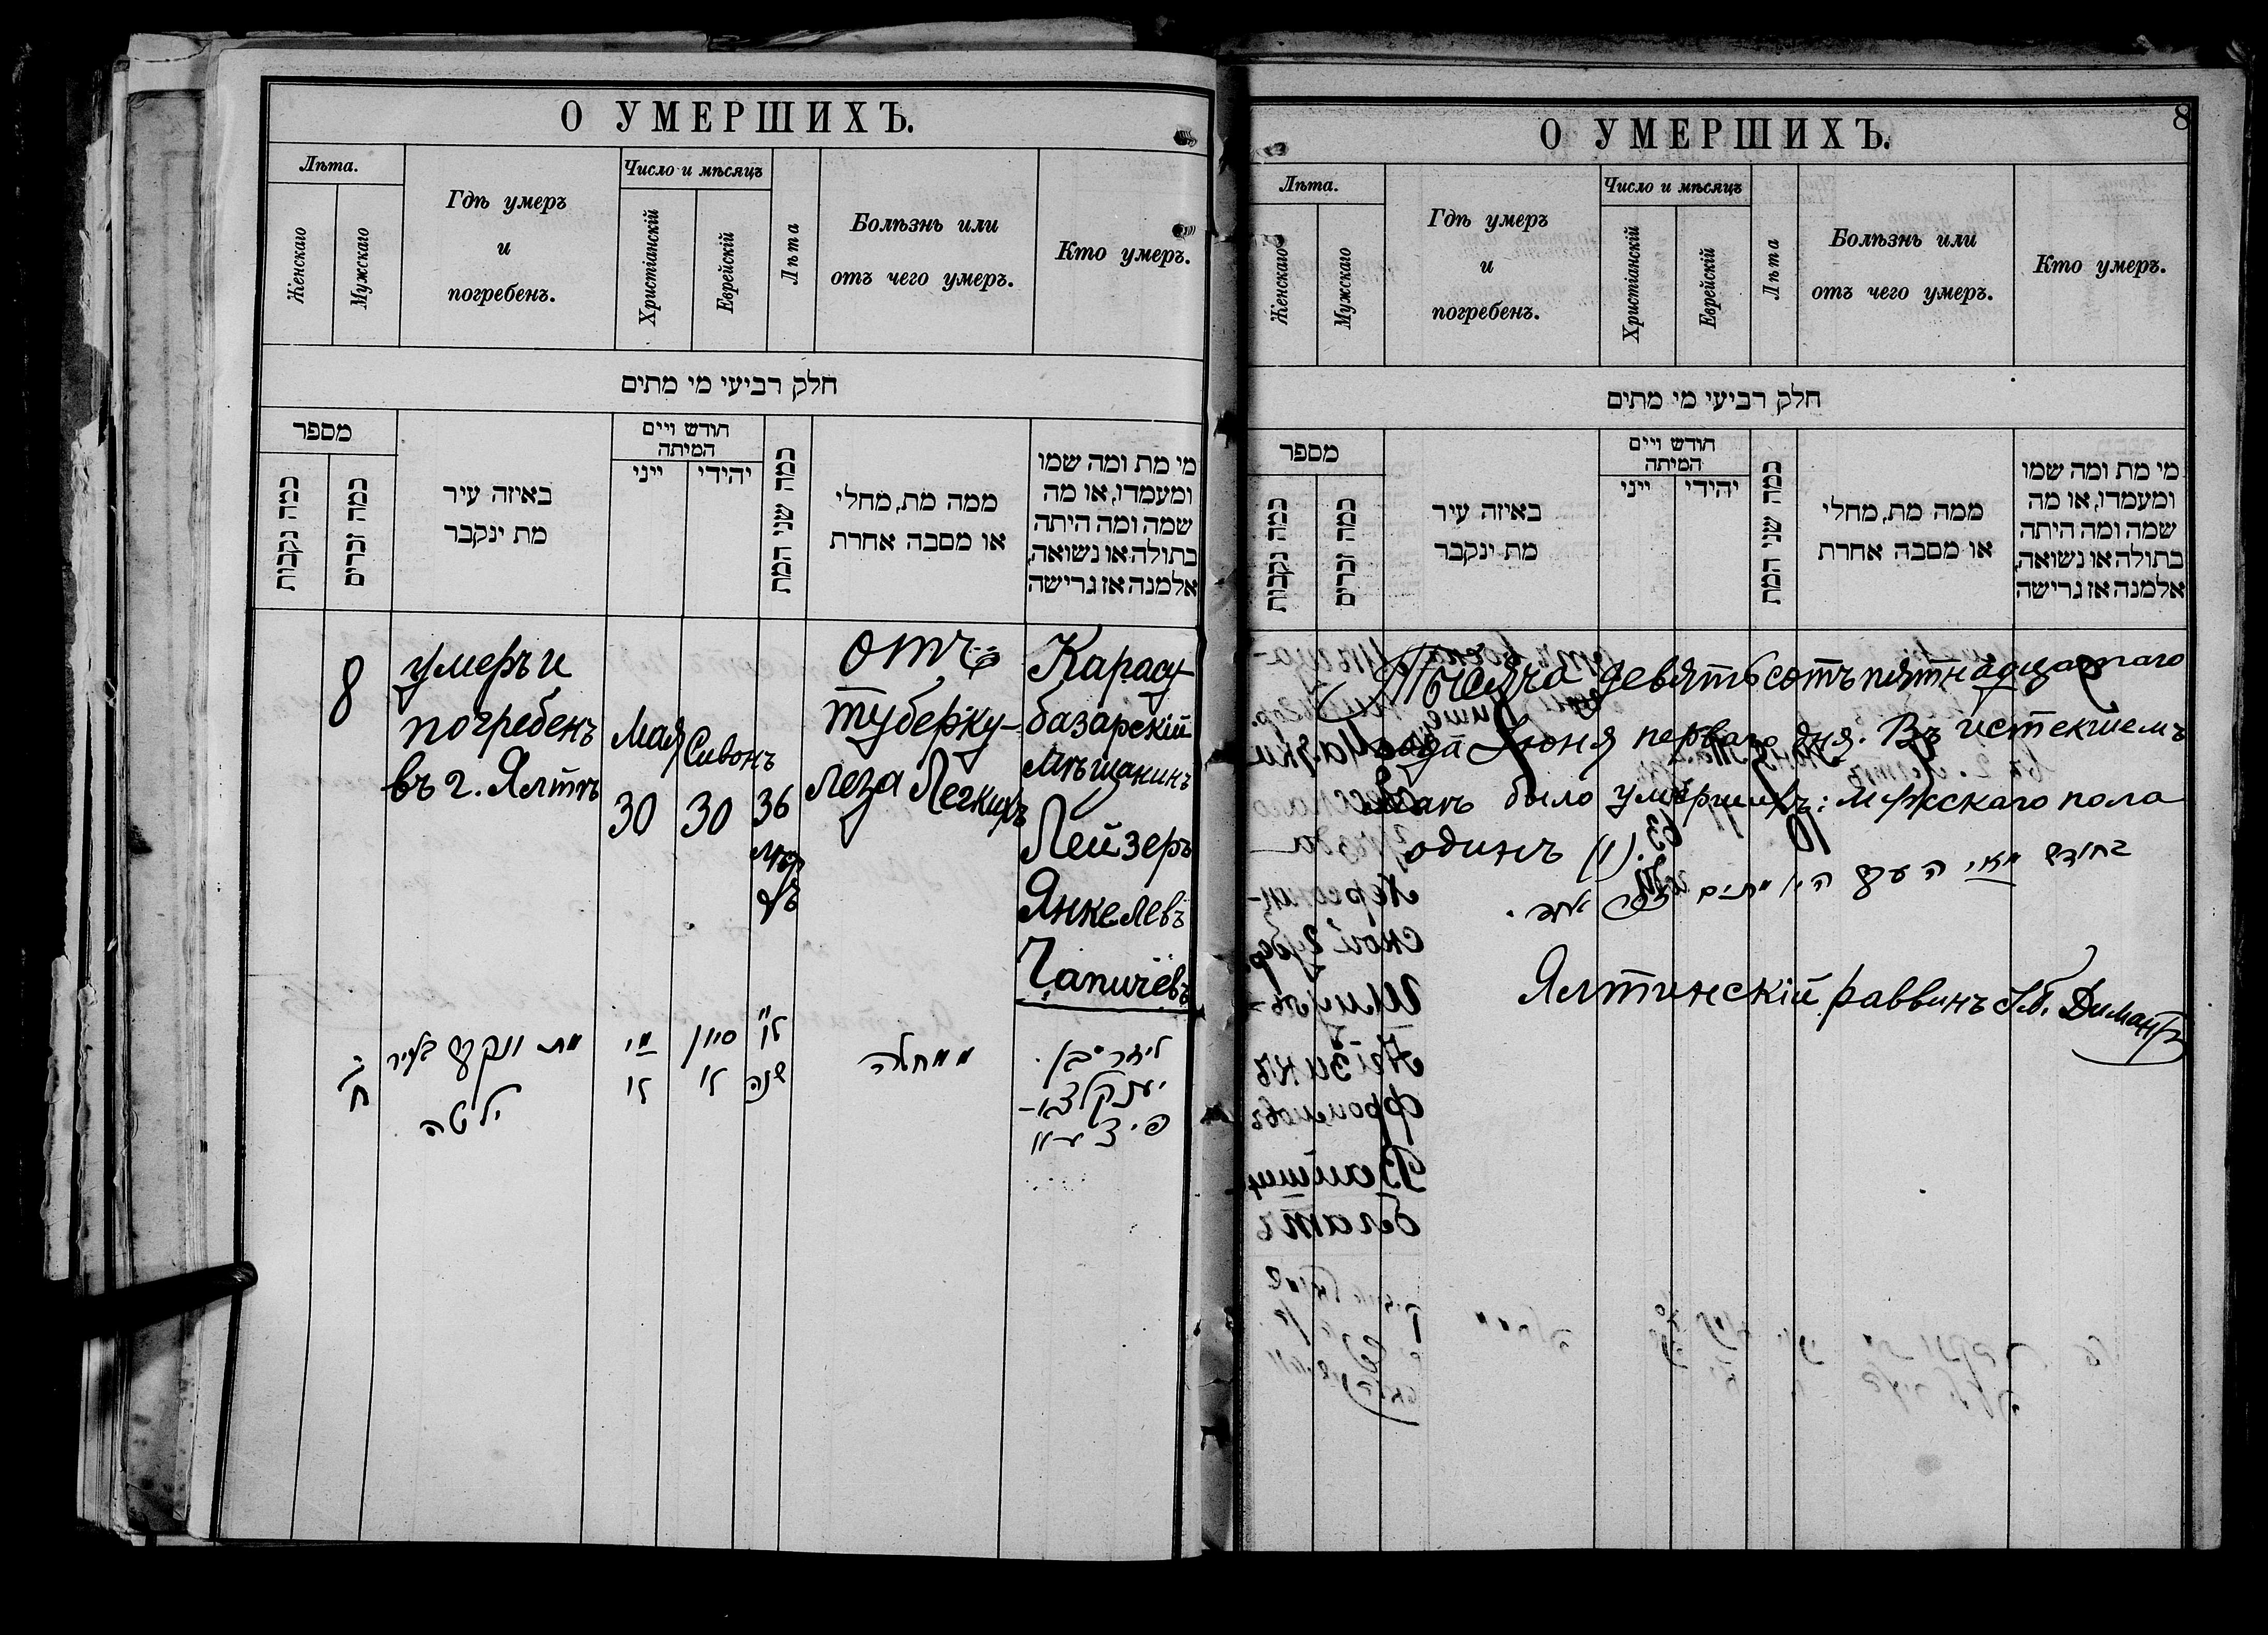 О УМЕРШИХЪ.
Лѣта.
Женскаго
Мужскаго
Гдѣ умеръ
и
погребенъ.
Число и мѣсяцъ
Христіанскій
Еврейскій
Лѣта
Болѣзнь или
отъ чего умеръ.
Кто умеръ.
חלק רביעי מי מתים
מספר
כמה נקבות
כמה זכרים
באיזה עיר
מת ינקבר
חודש ויים
המיתה
ייני
יהידי
כמה שני המת
ממה מת, מחלי
או מסבה אחרת
מי מת ומה שמו
ומעמדו, או מה
שמה ומה היתה
בתולה או נשואה,
אלמנה אז גרישה
8
умеръ и
погребенъ
въ г. Ялтѣ
Мая
30
Сивонъ
30
36
отъ
туберку-
леза Легкихъ
Карасу-
базарскій
мѣщанинъ
Лейзеръ
Янкелевъ
Чапичёвъ
מת ונקבר בעיר
ילטה
מאי
סיון
שנה
ממחלה
О УМЕРШИХЪ.
8
Лѣта.
Женскаго
Мужскаго
Гдѣ умеръ
и
погребенъ.
Число и мѣсяцъ
Христіанскій
Еврейскій
Лѣта
Болѣзнь или
отъ чего умеръ.
Кто умеръ.
חלק רביעי מי מתים
מספר
כמה נקבות
כמה זכרים
באיזה עיר
מת ינקבר
חודש ויים
המיתה
ייני
יהידי
כמה שני המת
ממה מת, מחלי
או מסבה אחרת
מי מת ומה שמו
ומעמדו, או מה
שמה ומה היתה
בתולה או נשואה,
אלמנה אז גרישה
Тысяча девятьсотъ пятнадцатаго
года Іюня перваго дня. Въ истекшемъ
Маѣ было умершихъ: мужскаго пола
одинъ (1).
בחודש מאי
Ялтинскій раввинъ Димантъ